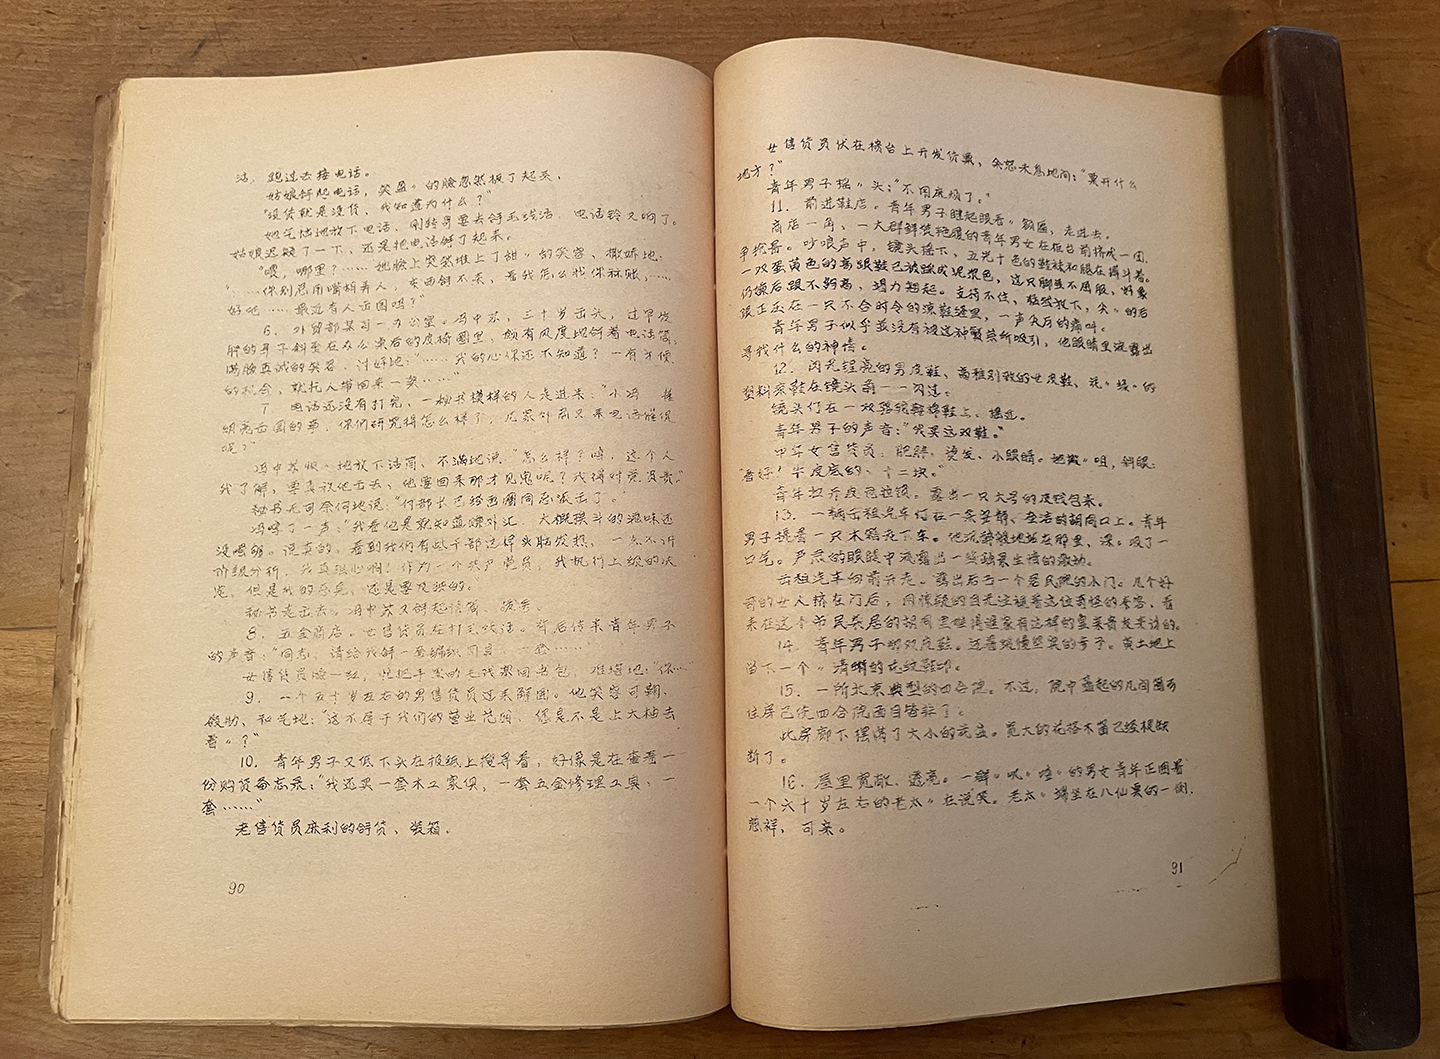 活，跑过去接电话。
姑娘拿起电话，笑盈〃的脸忽然板了起来，
“没货就是没货，我知道为什么？”
她气恼地放下电话，刚转身要去拿毛线活，电话铃又响了。
姑娘迟疑了一下，还是把电话拿了起来。
“喂，哪里？……她脸上突然堆上了甜〃的笑容，撒娇地：
“……你别尽用嘴糊弄人，东西拿不来，看我怎么找你补账，……
好吧……最近有人出国吗？”
6．外贸部某司一办公室。冯中苏，三十岁出头，过早发
胖的身子斜坐在办公桌后的皮椅圈里，颇有风度地拿着电话筒，
满脸真诚的笑容，讨好地：“……我的心你还不知道？一有方便
的机会，就托人带回来一架……”
7．电话还没有打完，一秘书模样的人走进来：“小冯，
出国的事，你们研究得怎么样了，又来电话催促
呢？”
冯中苏地放下话筒，不满地说“怎么样？哼，这个人
我了解，要真放他出去，他塞回来那才见鬼呢？我得对党负责”
秘书无可奈何地说：“何部长已经画圈同意派出了。”
冯哼了一声：“我看他是就知道赚外汇，大概批斗的滋味还
没喝够。说真的，看到我们有些干部这样头脑发热，一点不讲
阶级分析，我真担心啊！作为一个共产党员，我执行上级的决
定，但是我的意见，还是要反映的。
秘书走出去，冯中苏又拿起话筒，拨号。
8．五金商店。女售货员在打毛线活。背后传来青年男子
的声音：“同志，请给我拿一套编织用具，一套……”
女售货员脸一红，忙把手里的毛线塞回书包，难堪地：“你…”
9．一个五十岁左右的男售货员过来解围。他笑容可鞠，
殷勤、和气地：“这不属于我们的营业范围，您是不是上大柚去
看〃？”
10．青年男子又低下头在报纸上搜寻着，好像是在查看一
份购货备忘录：“我还买一套木工家俱，一套五金修理工具，一
套……”
老售货员麻利的拿货、装箱。
90
女售货员伏在柜台上开发货票，余怒未息地问：“票开什么
地方？”
青年男子摇〃头：“不用麻烦了。”
11．前进鞋店。青年男子瞇起眼看〃额匾，走进去。
商店一角，一大群鲜货艳履的青年男女在柜台前挤成一团，
争抢着。吵嚷声中，镜头摇下，五光十色的鞋袜和腿在搏斗着。
一双蛋黄色的高跟鞋已被踩成泥浆色，这只脚要不屈服，好象
仍嫌后跟不够高，竭力翘起。支持不住，猛然放下，尖〃的后
跟正压在一只不合时令的凉鞋缝里，一声尖厉的痛叫。
青年男子似乎並没有被这种繁荣所吸引，他眼睛里流露出
寻找什么的神情。
12．闪光锃亮的男皮鞋、高雅别致的女皮鞋、花〃绿〃的
塑料凉鞋在镜头前一一闪过。
镜头停在一双骆驼鞍棉鞋上，摇近。
青年男子的声音：“我买这双鞋。”
中年女售货员：肥胖，烫发、小眼睛。她撇〃咀，斜眼：
“看好！牛皮底的、十二块。”
青年拉开皮包拉锁。露出一只大号的皮钱包来。
13．一辆出租汽车停在一条安静、整洁的胡同口上。青年
男子提着一只木箱走下车。他沉静敏地站在那里，深〃吸了一
口气。严肃的眼睛中流露出一些对未来生活的激动。
出租汽车向前开走。露出后面一个居民院的小门。几个好
奇的女人挤在门后，用惊疑的目光注视着这位奇怪的来客，看
来在这个市民杂居的胡同里难得谁家有这样的富来贵友来访的。
14．青年男子的双皮鞋。迈着缓慢坚实的步子。黄土地上
留下一个〃清晰的花纹鞋印。
15．一所北京典型的四合院。不过，院中盖起的几间简易
住房已使四合院面目皆非了。
北房廊下摆满了大小的花盆。宽大的花格木窗已经横缺
断了。
16．屋里宽敞、透亮。一群〃叽〃喳〃的男女青年正围着
一个六十岁左右的老太〃在说笑。老太〃端坐在八仙桌的一侧，
慈祥，可亲。
91